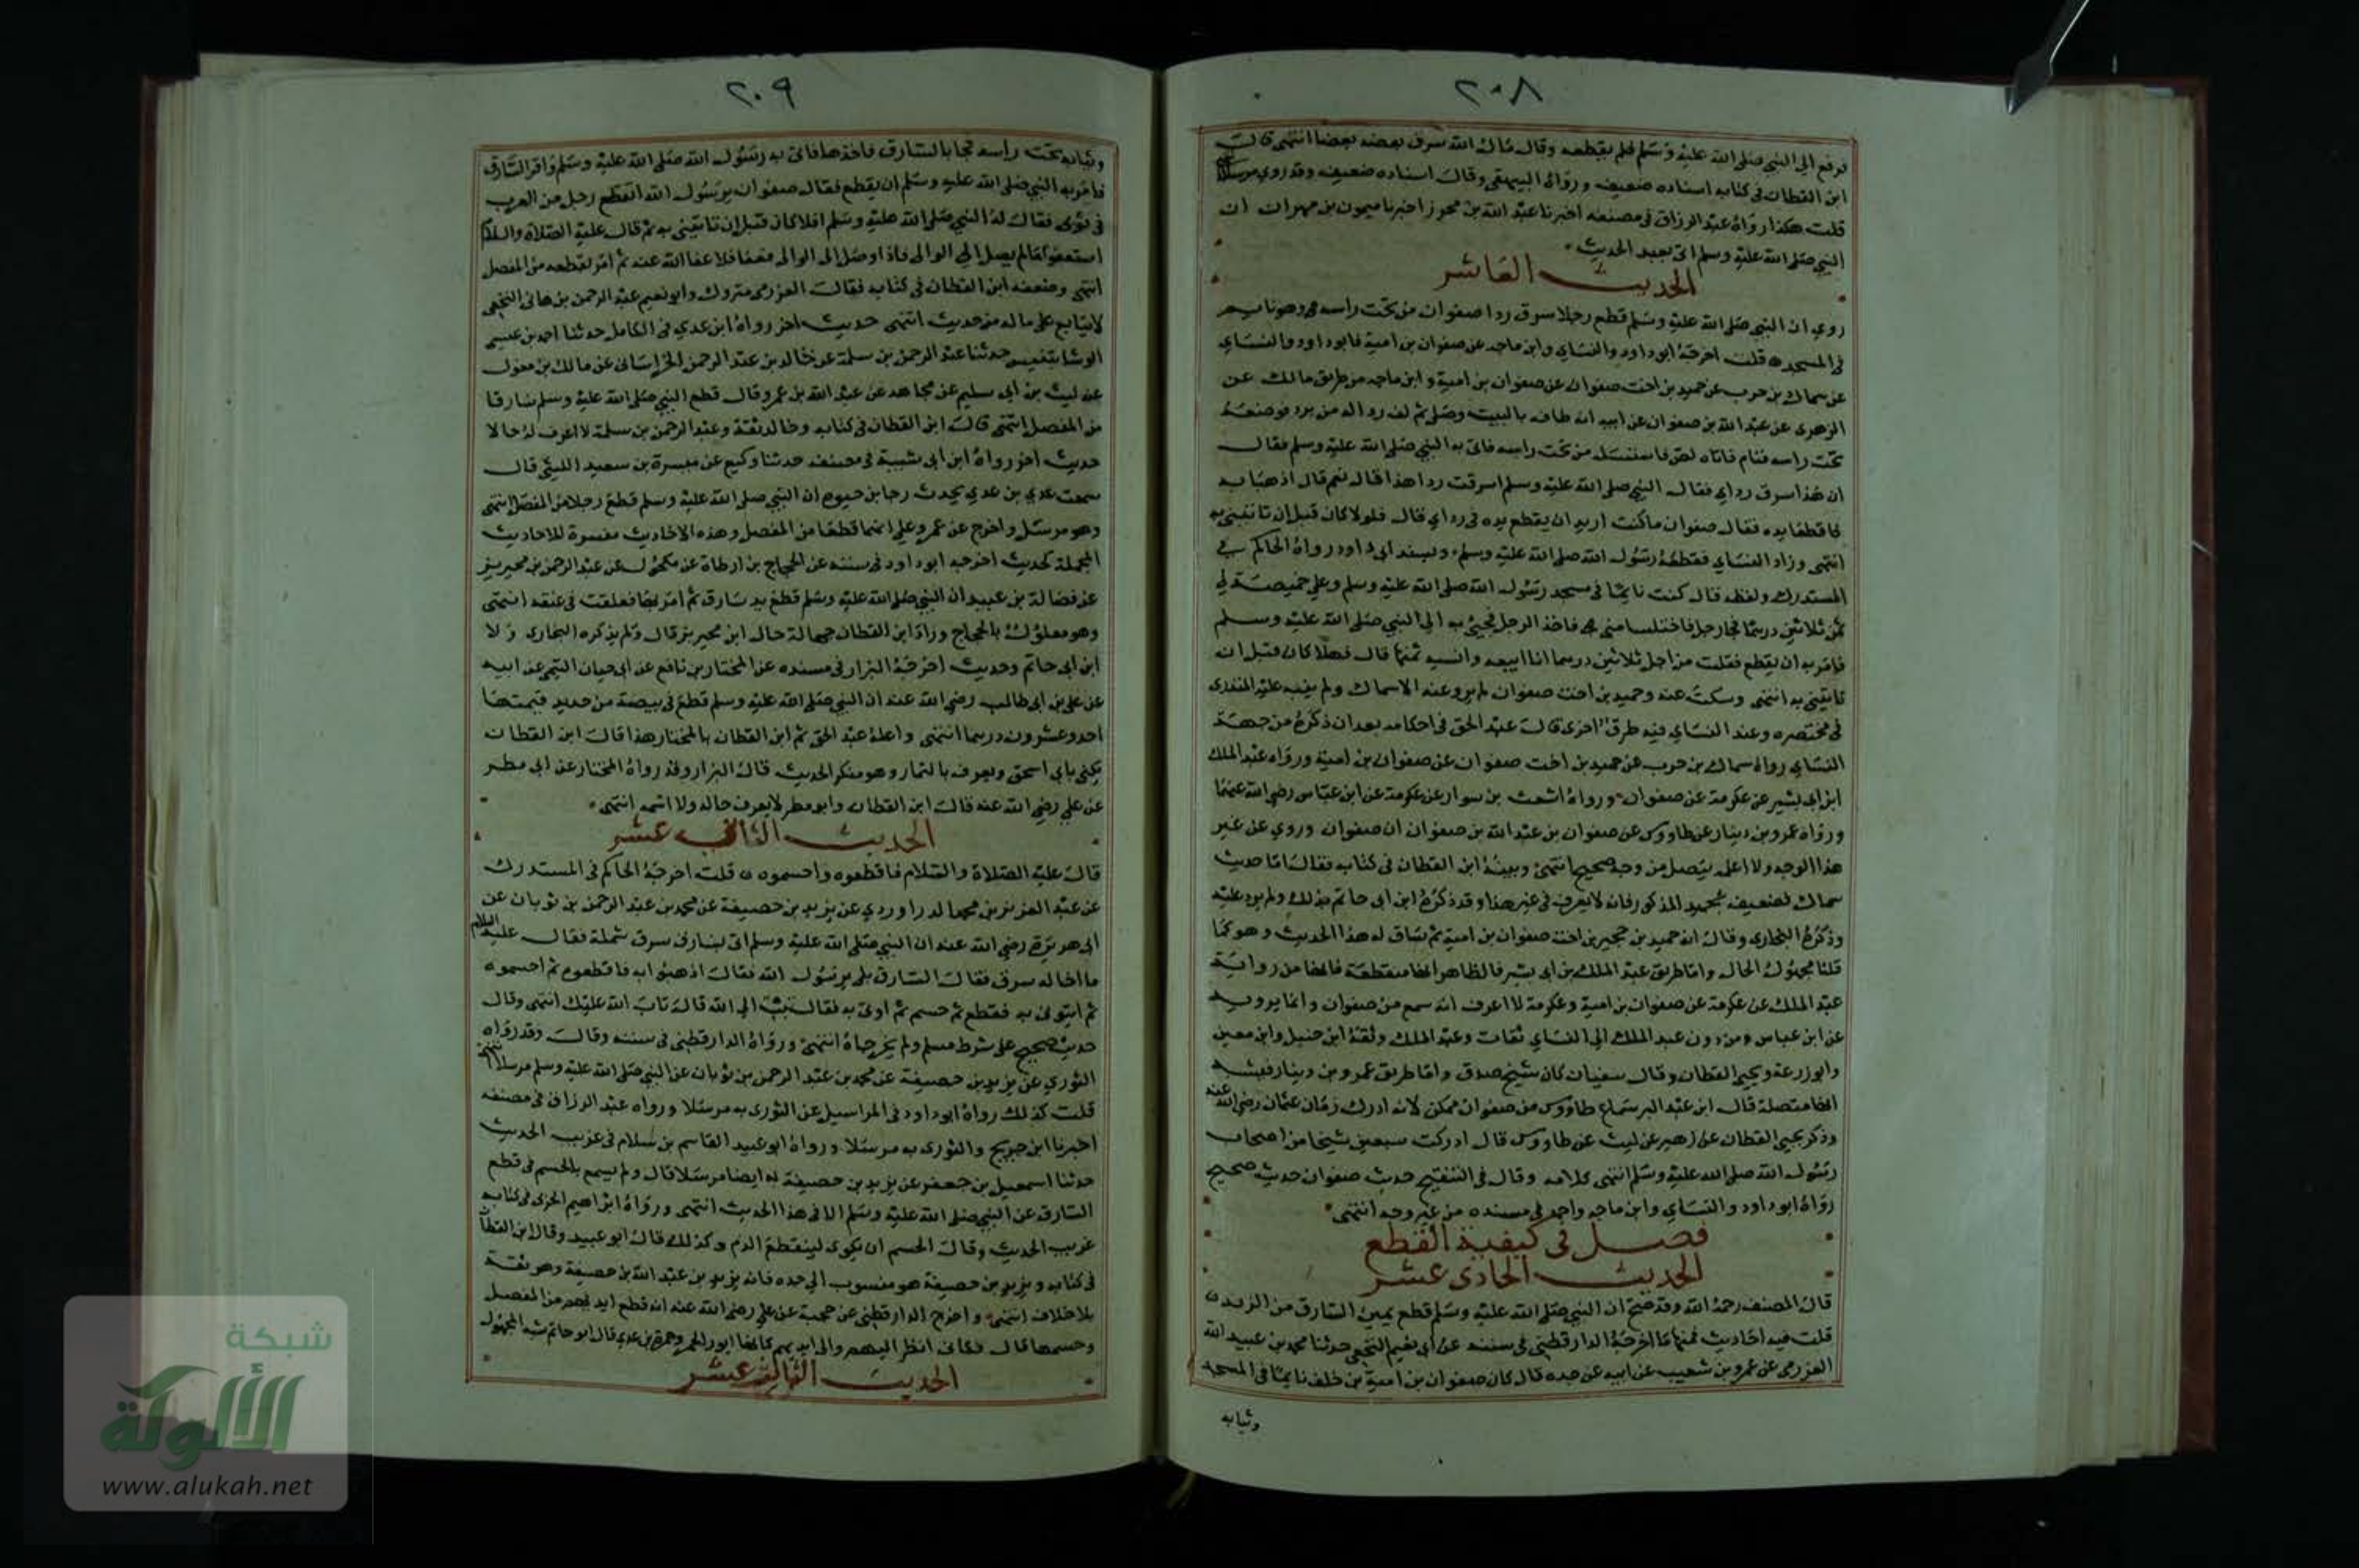 ٢٠٨
فرفع الى النبي صلى الله عليه وسلم فلم يقطعه وقال مال الله سرق بعضه بعضا انتهى قال
ابن القطان في كتابه اسناده ضعيف ورواه البيهقي وقال اسناده ضعيف وقد روي مرسلا
قلت هكذا رواه عبد الرزاق في مصنفه اخبرنا عبد الله بن محرز اخبرنا ميمون بن مهران ان
النبي صلى الله عليه وسلم اتى بعبد الحديث
الحديث العاشر
روي ان النبي صلى الله عليه وسلم قطع رجلا سرق ردا صفوان من تحت راسه وهو نايم
في المسجد قلت اخرجه ابو داود والنساي وابن ماجه عن صفوان بن امية فابو داود والنساي
عن سماك بن حرب عن حميد بن اخت صفوان عن صفوان بن امية وابن ماجه من طريق مالك عن
الزهري عن عبد الله بن صفوان عن ابيه انه طاف بالبيت وصلى ثم لف ردا له من برد فوضعه
تحت راسه فنام فاتاه لص فاستسله من تحت راسه فاتى به النبي صلى الله عليه وسلم فقال
ان هذا سرق رداي فقال النبي صلى الله عليه وسلم اسرقت ردا هذا قال نعم قال اذهبا به
فاقطعا يده فقال صفوان ما كنت اريد ان يقطع يده في رداي قال فلولا كان قبل ان تاتيني به
انتهى وزاد النساي فقطعه رسول الله صلى الله عليه وسلم وبسند ابي داود رواه الحاكم في
المستدرك ولفظه قال كنت نايما في مسجد رسول الله صلى الله عليه وسلم وعلي خميصة لي
ثمن ثلاثين درهما فجا رجل فاختلسها مني فاخذ الرجل فجيء به الى النبي صلى الله عليه وسلم
فامر به ان يقطع فقلت من اجل ثلاثين درهما انا ابيعه وانسيه ثمنها قال فهلا كان قبل ان
تاتيني به انتهى وسكت عنه وحميد بن اخت صفوان لم يرو عنه الا سماك ولم ينبه عليه المنذري
في مختصره وعند النساي فيه طرق اخرى قال عبد الحق في احكامه بعد ان ذكره من جهة
النساي رواه سماك بن حرب عن حميد بن اخت صفوان عن صفوان بن امية ورواه عبد الملك
ابن ابي بشير عن عكرمة عن صفوان ورواه اشعث بن سوار عن عكرمة عن ابن عباس رضي الله عنهما
ورواه عمرو بن دينار عن طاووس عن صفوان بن عبد الله بن صفوان ان صفوان وروي عن غير
هذا الوجه ولا اعلمه يتصل من وجه صحيح انتهى وبينه ابن القطان في كتابه فقال اما حديث
سماك فضعيف بحميد المذكور فانه لا يعرف في غير هذا وقد ذكره ابن ابي حاتم بذلك ولم يزد عليه
وذكره البخاري وقال انه حميد بن حجير بن اخت صفوان بن امية ثم ساق له هذا الحديث وهو كما
قلنا مجهول الحال واما طريق عبد الملك بن ابي بشير فالظاهر انها منقطعة فانها من رواية
عبد الملك عن عكرمة عن صفوان بن امية وعكرمة لا اعرف انه سمع من صفوان وانما يرويه
عن ابن عباس ومن دون عبد الملك الى النساي ثقات وعبد الملك وثقه ابن حنبل وابن معين
وابو زرعة ويحيى القطان وقال سفيان كان شيخ صدق واما طريق عمرو بن دينار فيشبه
انها متصلة قال ابن عبد البر سماع طاووس من صفوان ممكن لانه ادرك زمان عثمان رضي الله عنه
وذكر يحيى القطان عن زهير عن ليث عن طاووس قال ادركت سبعين شيخا من اصحاب
رسول الله صلى الله عليه وسلم انتهى كلامه وقال في التنقيح حديث صفوان حديث صحيح
رواه ابو داود والنساي وابن ماجه واحمد في مسنده من غير وجه انتهى
فصل في كيفية القطع
الحديث الحادي عشر
قال المصنف رحمه الله وقد صح ان النبي صلى الله عليه وسلم قطع يمين السارق من الزند
قلت فيه احاديث فمنها ما اخرجه الدارقطني في سننه عن ابي نعيم النخعي حدثنا محمد بن عبيد الله
العزرمي عن عمرو بن شعيب عن ابيه عن جده قال كان صفوان بن امية بن خلف نايما في المسجد
وثيابه
٢٠٩
وثيابه تحت راسه فجا بالسارق فاخذها فاتى به رسول الله صلى الله عليه وسلم واقر السارق
فامر به النبي صلى الله عليه وسلم ان يقطع فقال صفوان يرسول الله اتقطع رجل من العرب
في ثوبي فقال له النبي صلى الله عليه وسلم افلا كان قبل ان تاتيني به ثم قال عليه الصلاة والسلام
اشفعوا ما لم يصل الى الوالي فاذا وصل الى الوالي فعفا فلا عفا الله عنه ثم امر بقطعه من المفصل
انتهى وضعفه ابن القطان في كتابه فقال العزرمي متروك وابو نعيم عبد الرحمن بن هاني النخعي
لا يتابع على ما له من حديث انتهى حديث اخر رواه ابن عدي في الكامل حدثنا احمد بن عيسى
الوشا بتنيس حدثنا عبد الرحمن بن سلمة عن خالد بن عبد الرحمن الخراساني عن مالك بن مغول
عن ليث بن ابي سليم عن مجاهد عن عبد الله بن عمرو قال قطع النبي صلى الله عليه وسلم سارقا
من المفصل انتهى قال ابن القطان في كتابه وخالد ثقة وعبد الرحمن بن سلمة لا اعرف له حالا
حديث اخر رواه ابن ابي شيبة في مصنفه حدثنا وكيع عن ميسرة بن سعيد الليثي قال
سمعت عدي بن عدي يحدث رجا بن حيوه ان النبي صلى الله عليه وسلم قطع رجلا من المفصل انتهى
وهو مرسل واخرج عن عمر وعلي انهما قطعا من المفصل وهذه الاحاديث مفسرة للاحاديث
المجملة كحديث اخرجه ابو داود في سننه عن الحجاج بن ارطاة عن مكحول عن عبد الرحمن بن محيريز
عن فضالة بن عبيد ان النبي صلى الله عليه وسلم قطع يد سارق ثم امر بها فعلقت في عنقه انتهى
وهو معلول بالحجاج وزاد ابن القطان جهالة حال ابن محيريز قال ولم يذكره البخاري ولا
ابن ابي حاتم وحديث اخرجه البزار في مسنده عن المختار بن نافع عن ابي حيان التيمي عن ابيه
عن علي بن ابي طالب رضي الله عنه ان النبي صلى الله عليه وسلم قطع في بيضة من حديد قيمتها
احد وعشرون درهما انتهى واعله عبد الحق ثم ابن القطان بالمختار هذا قال ابن القطان
يكنى بابي اسحق ويعرف بالتمار وهو منكر الحديث قال البزار وقد رواه المختار عن ابي مطر
عن علي رضي الله عنه قال ابن القطان وابو مطر لا يعرف حاله ولا اسمه انتهى
الحديث الثاني عشر
قال عليه الصلاة والسلام فاقطعوه واحسموه قلت اخرجه الحاكم في المستدرك
عن عبد العزيز بن محمد الدراوردي عن يزيد بن خصيفة عن محمد بن عبد الرحمن بن ثوبان عن
ابي هريرة رضي الله عنه ان النبي صلى الله عليه وسلم اتى بسارق سرق شملة فقال عليه السلام
ما اخاله سرق فقال السارق بلى يرسول الله فقال اذهبوا به فاقطعوه ثم احسموه
ثم ايتوني به فقطع ثم حسم ثم اوتى به فقال تب الى الله قال تاب الله عليك انتهى وقال
حديث صحيح على شرط مسلم ولم يخرجاه انتهى ورواه الدارقطني في سننه وقال وقد رواه
الثوري عن يزيد بن خصيفة عن محمد بن عبد الرحمن بن ثوبان عن النبي صلى الله عليه وسلم مرسلا
قلت كذلك رواه ابو داود في المراسيل عن الثوري به مرسلا ورواه عبد الرزاق في مصنفه
اخبرنا ابن جريج والثوري به مرسلا ورواه ابو عبيد القاسم بن سلام في غريب الحديث
حدثنا اسمعيل بن جعفر عن يزيد بن خصيفة به ايضا مرسلا قال ولم يسمع بالحسم في قطع
السارق عن النبي صلى الله عليه وسلم الا في هذا الحديث انتهى ورواه ابراهيم الحربي في كتابه
غريب الحديث وقال الحسم ان يكوى لينقطع الدم وكذلك قال ابو عبيد وقال ابن القطان
في كتابه ويزيد بن خصيفة هو منسوب الى جده فانه يزيد بن عبد الله بن خصيفة وهو ثقة
بلا خلاف انتهى واخرج الدارقطني عن حجية عن علي رضي الله عنه انه قطع ايديهم من المفصل
وحسمها قال فكاني انظر اليهم والى ايديهم كانها ايور الحمر
الحديث الثالث عشر
شبكة
الألوكة
www.alukah.net